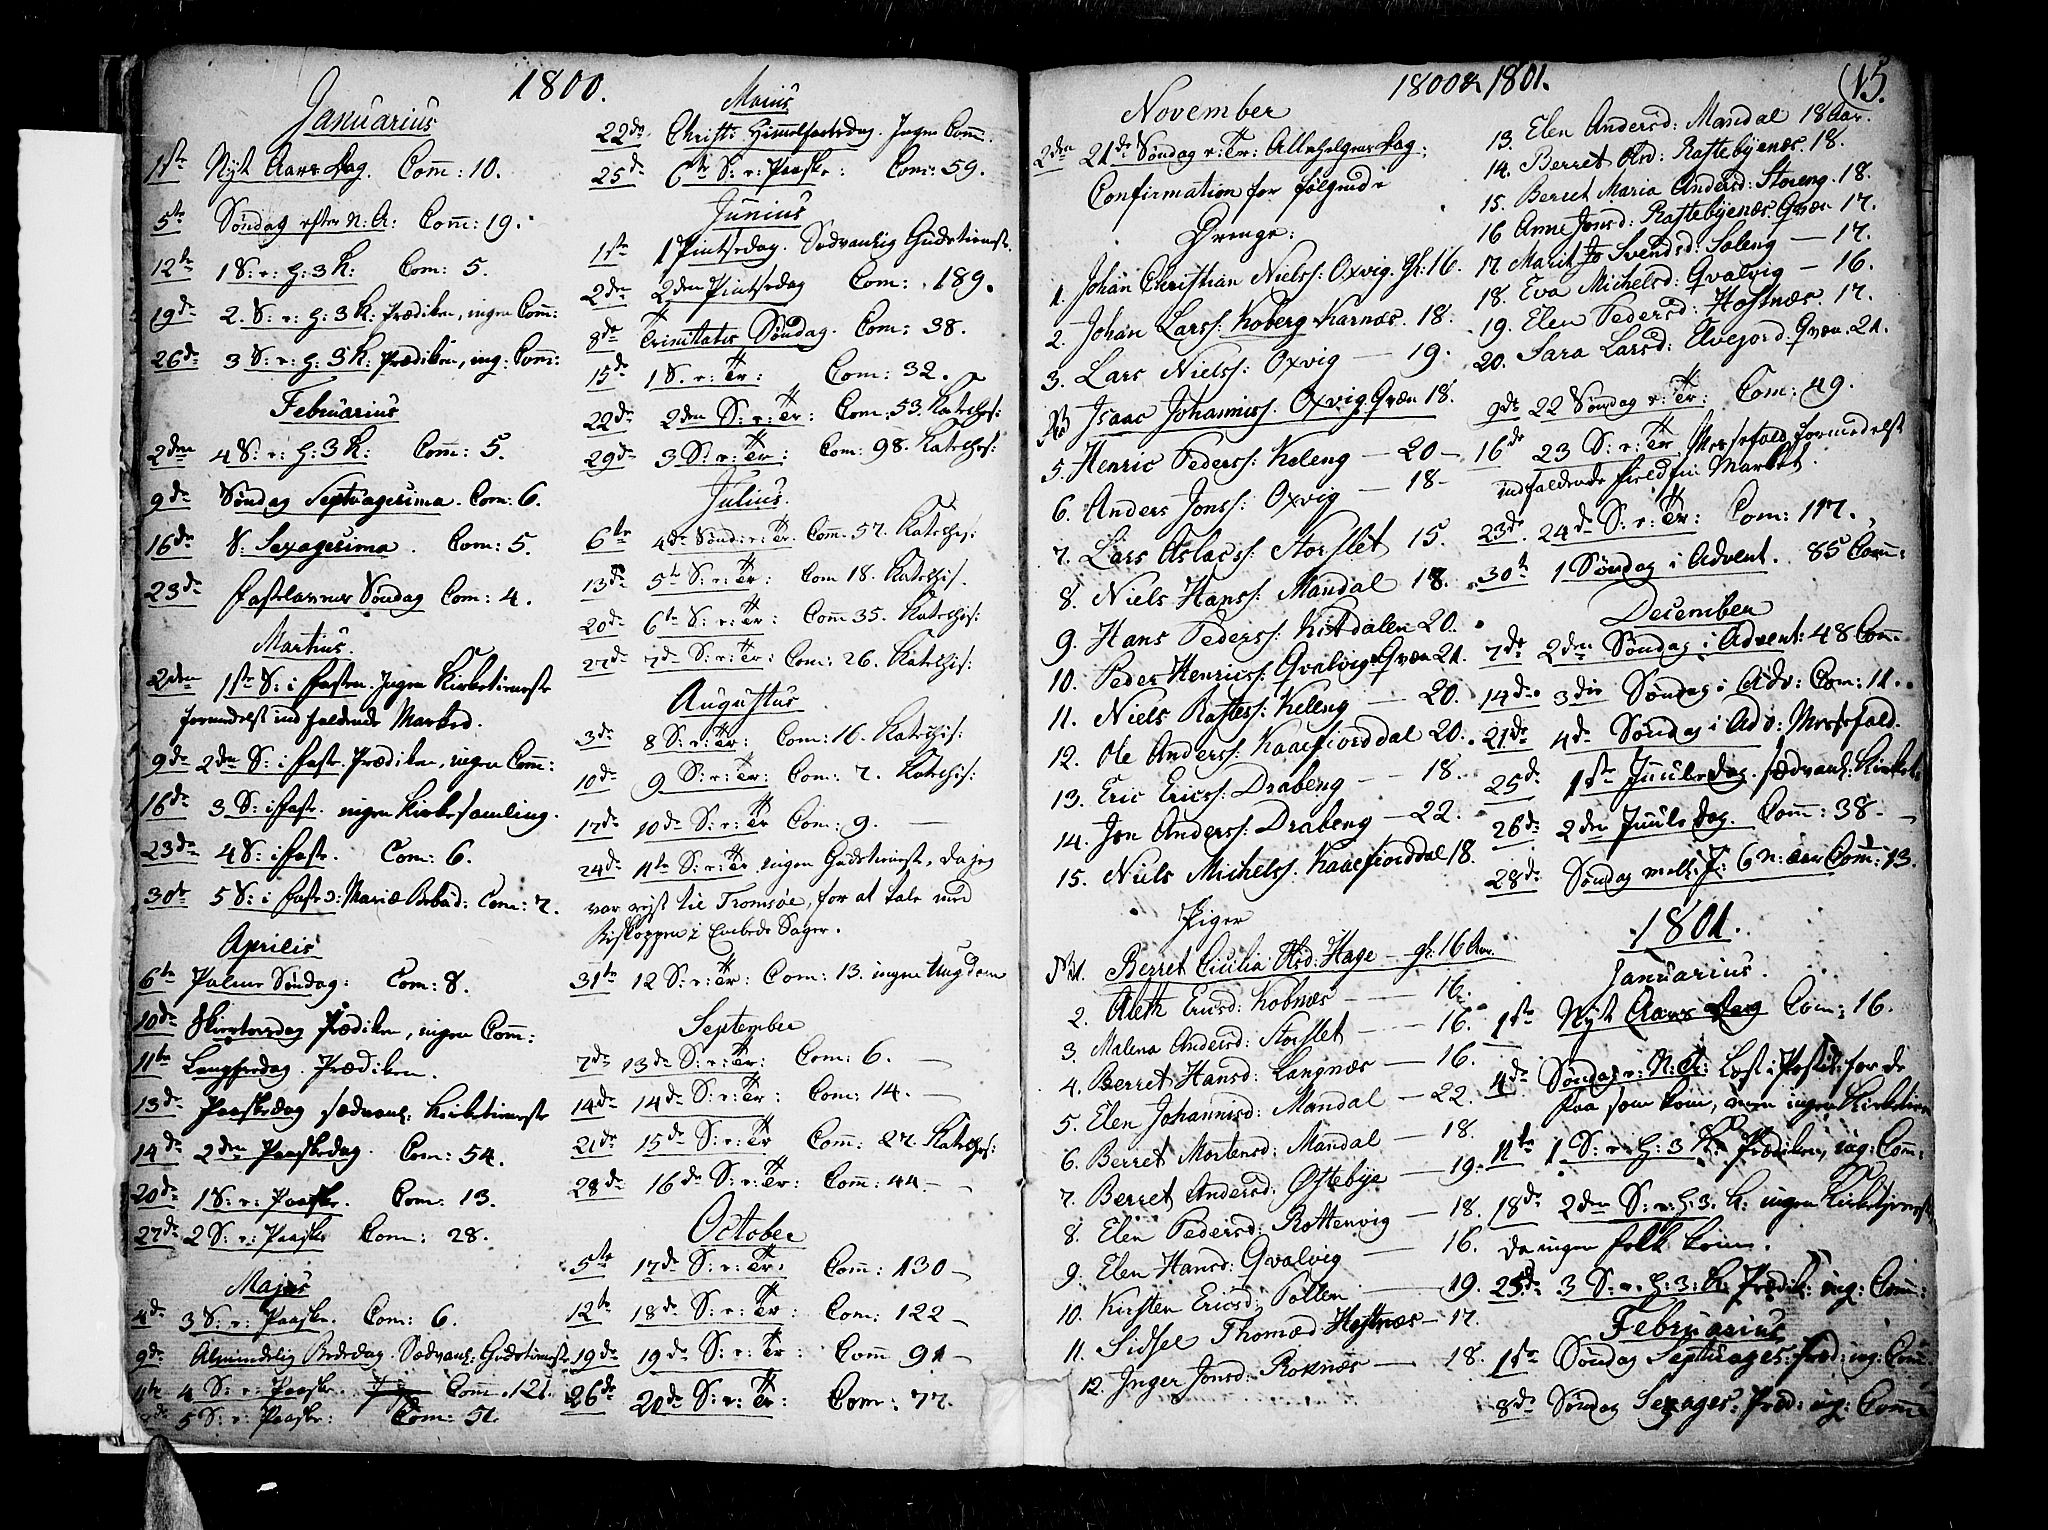 1800.
Januarius
1ste Nyt Aars Dag. Com: 10.
5te Søndag efter N: A: Com: 19.
12te 1 S: e: H: 3 K: Com: 5.
19de 2. S: e: H: 3 K: Prædiken, ingen Com:
26de 3 S: e: H: 3 K: Prædiken, ing: Com:
Februarius
2den 4 S: e: H: 3 K: Com: 5.
9de Søndag Septuagesima. Com: 6.
16de S: Sexagesima. Com: 5.
23de Fastelavns Søndag Com: 4.
Martius.
2den 1ste S: i Fasten. Ingen Kirketieneste
formedelst indfaldende Marked.
9de 2den S: i Faste. Prædiken, ingen Com:
16de 3 S: i Faste. ingen Kirkesamling.
23de 4 S: i Faste. Com: 6.
30te 5 S: i Faste ɔ: Mariæ Bebud: Com: 7.
Aprilis
6te Palme Søndag: Com: 8.
10de Skiertorsdag Prædiken, ingen Com:
11te Langfredag. Prædiken.
13de Paaskedag sædvanl: Kirketieneste
14de 2den Paaskedag. Com: 54.
20de 1 S: e: Paaske. Com: 13.
27de 2 S: e: Paaske Com: 28.
Majus
4de 3 S: e: Paaske. Com: 6.
9de Almindelig Bededag. Sædvanl: Gudstieneste
11te 4 S: e: Paaske. Com. 121.
5 S: e: Paaske: Com: 51.
Maius
22de Christi Himmelfartsdag. Ingen Com:
25de 6te S: e: Paaske: Com: 59.
Junius
1ste 1 Pintsedag. Sædvanlig Gudstieneste.
2den 2den Pintsedag Com: 189.
8de Trinitatis Søndag. Com: 38.
15de 1 S. e: Tr: Com: 32.
22de 2den S: e: Tr: Com: 53. Katechis:
29de 3 S: e: Tr: Com: 98. Katechis:
Julius.
6te 4de Sønd: e: Tr: Com. 57. Katechis:
13de 5te S: e: Tr: Com 18. Katechis.
20de 6te S: e: Tr: Com 35. Katechis:
27de 7de S: e: Tr: Com: 26. Katechis:
Augustus
3de 8 S: e: Tr: Com: 16. Katechis:
10de 9 S: e: Tr: Com: 7. Katechis:
17de 10de S: e: Tr Com: 9. —
24de 11te S: e: Tr ingen Gudstieneste, da jeg
var rejst til Tromsøe, for at tale med
Biskoppen i Embeds Sager.
31te 12 S: e: Tr: Com: 13. ingen Ungdom
September
7de 13de S: e: Tr: Com: 6. —
14de 14de S: e: Tr: Com: 14. —
21de 15de S: e: Tr Com: 27. Katechis:
28de 16de S: e: Tr: Com: 44 —
October
5te 17de S: e: Tr: Com: 130 —
12te 18de S: e: Tr: Com: 122 —
19de 19de S: e: Tr: Com 91 —
26de 20de S: e: Tr: Com: 77.
1800 & 1801.
15.
November
2den 21de Søndag e: Tr: Allehelgens Dag:
Confirmation for følgende
Drenge:
1. Johan Christian Nielss: Oxvig. Gl: 16.
2. Johan Larss: Koberg Karnæs. 18.
3. Lars Nielss: Oxvig — 19.
Isaac Johanniss. Oxvig. Qvæn 18.
5. Henric Pederss: Keleng — 20 —
6. Anders Jonss: Oxvig — 18 —
7. Lars Aslacss: Storslet 15.
8. Niels Hanss: Mandal 18.
9. Hans Pederss: Kitdalen 20.
10. Peder Henricss: Qvalvig Qvæn 21.
11. Niels Raftess: Keleng — 20.
12. Ole Anderss: Kaaefiorddal 20.
13. Eric Ericss: Drabeng — 18.
14. Jon Anderss: Drabeng — 22.
15. Niels Michelss. Kaaefiorddal 18.
Piger
1. Berret Cicilia Olsd: Hage — gl: 16 Aar.
2. Aleth Ericsd: Kobnæs — 16.
3. Malena Andersd: Storslet — 16.
4. Berret Hansd: Langnæs — 16.
5. Elen Johannisd: Mandal — 22.
6. Berret Mortensd: Mandal — 18.
7. Berret Andersd: Østebye — 19.
8. Elen Pedersd: Rottenvig — 18.
9. Elen Hansd: Qvalvig — 16.
10. Kirsten Ericsd: Pollen — 19.
11. Sidsel Thomæd Hostnæs — 17.
12. Inger Jonsd: Roknæs — 18.
13. Elen Andersd: Mandal 18 Aar.
14. Berret Olsd: Raftebyenæs. 18.
15. Berret Maria Andersd: Storeng. 18.
16 Anne Jonsd: Raftebyenæs Qvæn 17.
17. Marit Jo Svendsd: Soleng — 17.
18. Eva Michelsd: Qvalvig — 16.
19. Elen Pedersd: Hostnæs. 17.
20. Sara Larsd: Elvejord Qvæn. 21.
9de 22 Søndag e: Tr: Com: 49.
16de 23 S: e: Tr Messefald formedelst
indfaldende Marked.
23de 24de S: e: Tr: Com: 117.
30te 1 Søndag i Advent. 85 Com:
December
7de 2den Søndag i Advent: 48 Com:
14de 3die Søndag i Adv: Com: 11.
21de 4de Søndag i Adv: Messefald.
25de 1ste Juule Dag. sædvanl: Kirket:
26de 2den Juule dag. Com: 38 —
28de Søndag mell: J: & N: aar Com: 13.
1801.
Januarius.
1ste Nyt Aars Dag Com: 16.
4de Søndag e: N: A: Læst i Postil: for de
faa som kom, men ingen Kirketien
11te 1 S: e: H: 3 K: Prædiken, ing: Com:
18de 2den S: e: H: 3. K: ingen Kirketjeneste
da ingen folk kom.
25de 3 S: e: H: 3: K: Prædik: ing: Com:
Februarius
1ste Søndag Septuages: Præd: ing: Com:
8de Søndag Sexages: Præd: ing: Com: